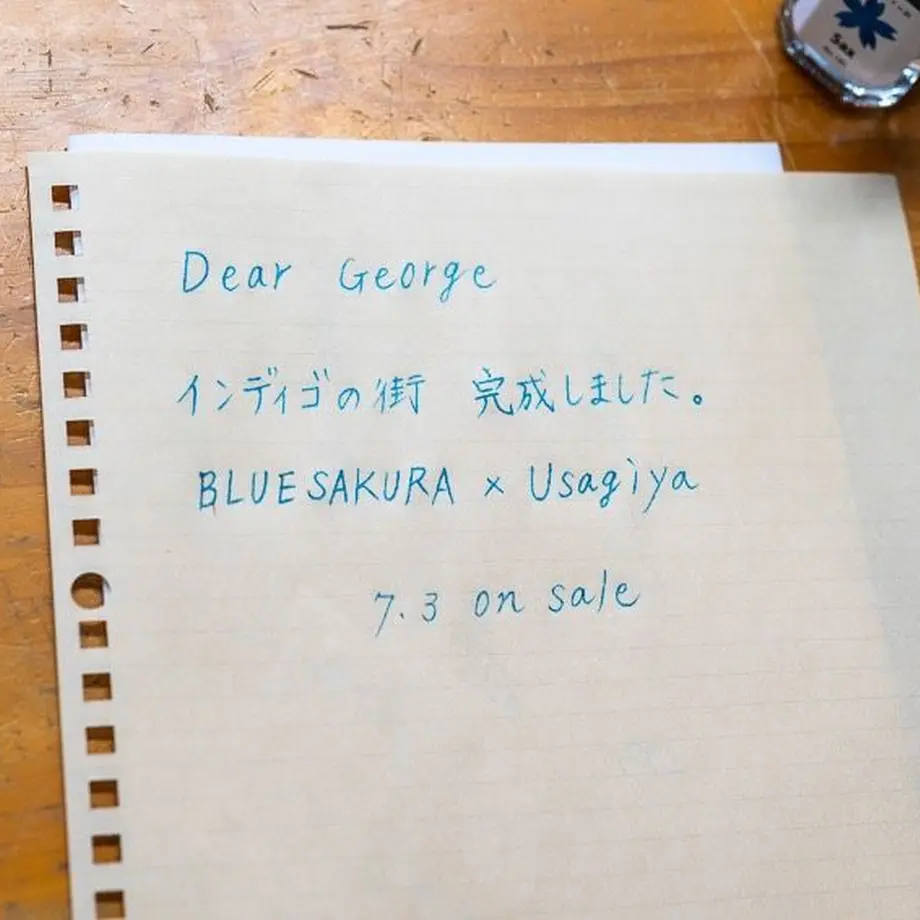 Dear George
インディゴの街 完成しました。
BLUE SAKURA × Usagiya
7.3 on sale